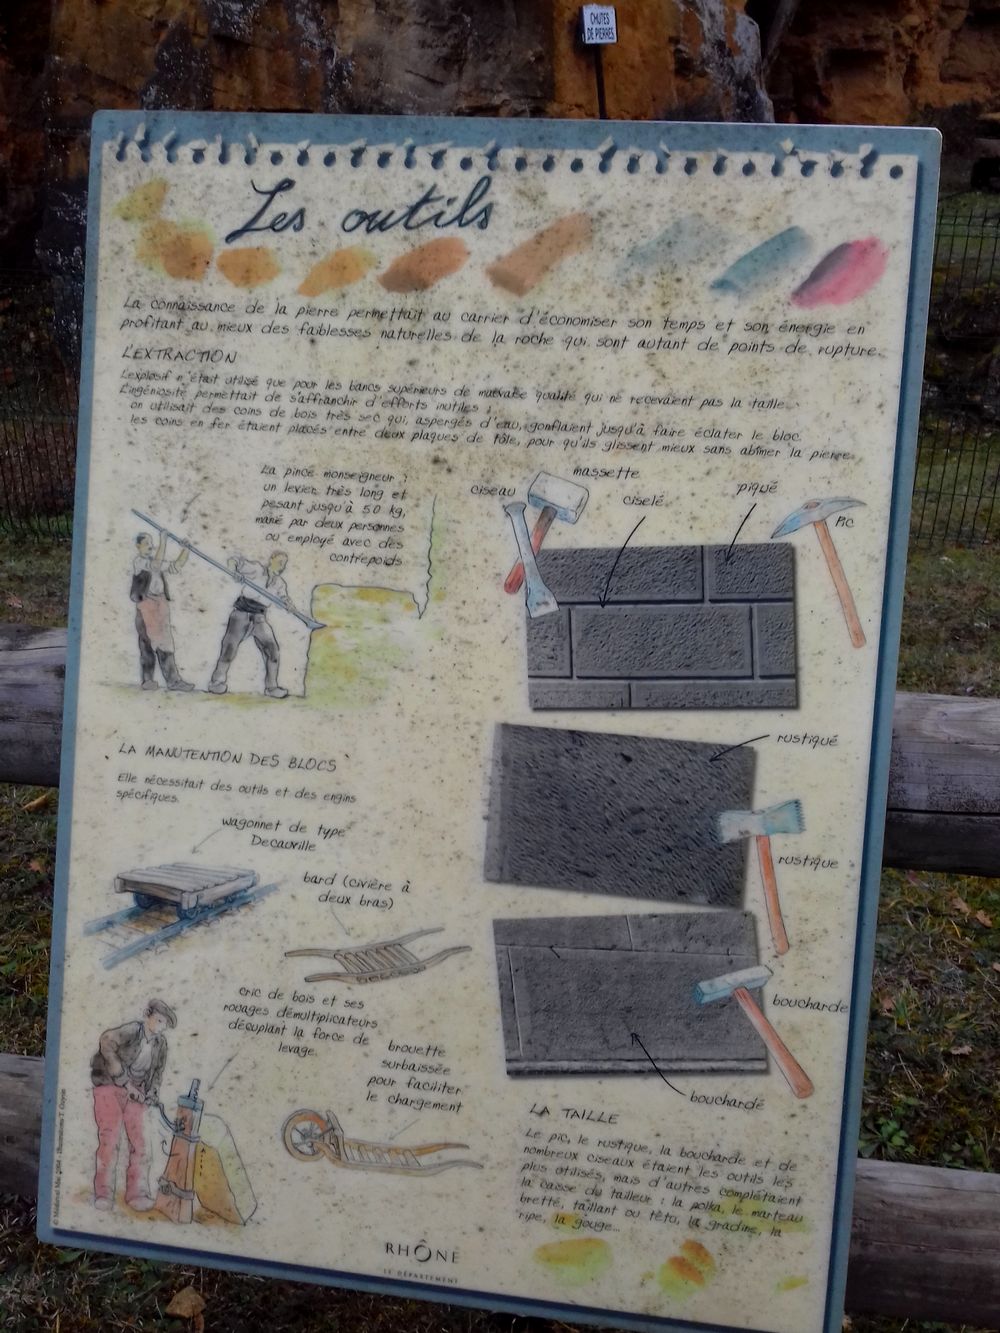 CHUTES
DE PIERRES
Les outils
La connaissance de la pierre permettait au carrier d'économiser son temps et son énergie en
profitant au mieux des faiblesses naturelles de la roche qui sont autant de points de rupture.
L'EXTRACTION
L'explosif n'était utilisé que pour les bancs supérieurs de mauvaise qualité qui ne recevaient pas la taille.
L'ingéniosité permettait de s'affranchir d'efforts inutiles :
on utilisait des coins de bois très sec qui, aspergés d'eau, gonflaient jusqu'à faire éclater le bloc.
les coins en fer étaient placés entre deux plaques de tôle, pour qu'ils glissent mieux sans abîmer la pierre.
La pince monseigneur :
un levier très long et
pesant jusqu'à 50 kg,
manié par deux personnes
ou employé avec des
contrepoids
massette
ciseau
ciselé
piqué
Pic
rustiqué
rustique
boucharde
bouchardé
LA MANUTENTION DES BLOCS
Elle nécessitait des outils et des engins
spécifiques.
wagonnet de type
Decauville
bard (civière à
deux bras)
cric de bois et ses
rouages démultiplicateurs
décuplant la force de
levage.
brouette
surbaissée
pour faciliter
le chargement
LA TAILLE
Le pic, le rustique, la boucharde et de
nombreux ciseaux étaient les outils les
plus utilisés, mais d'autres complétaient
la casse du tailleur : la polka, le marteau
bretté, taillant ou têtu, la gradine, la
ripe, la gouge...
RHÔNE
LE DÉPARTEMENT